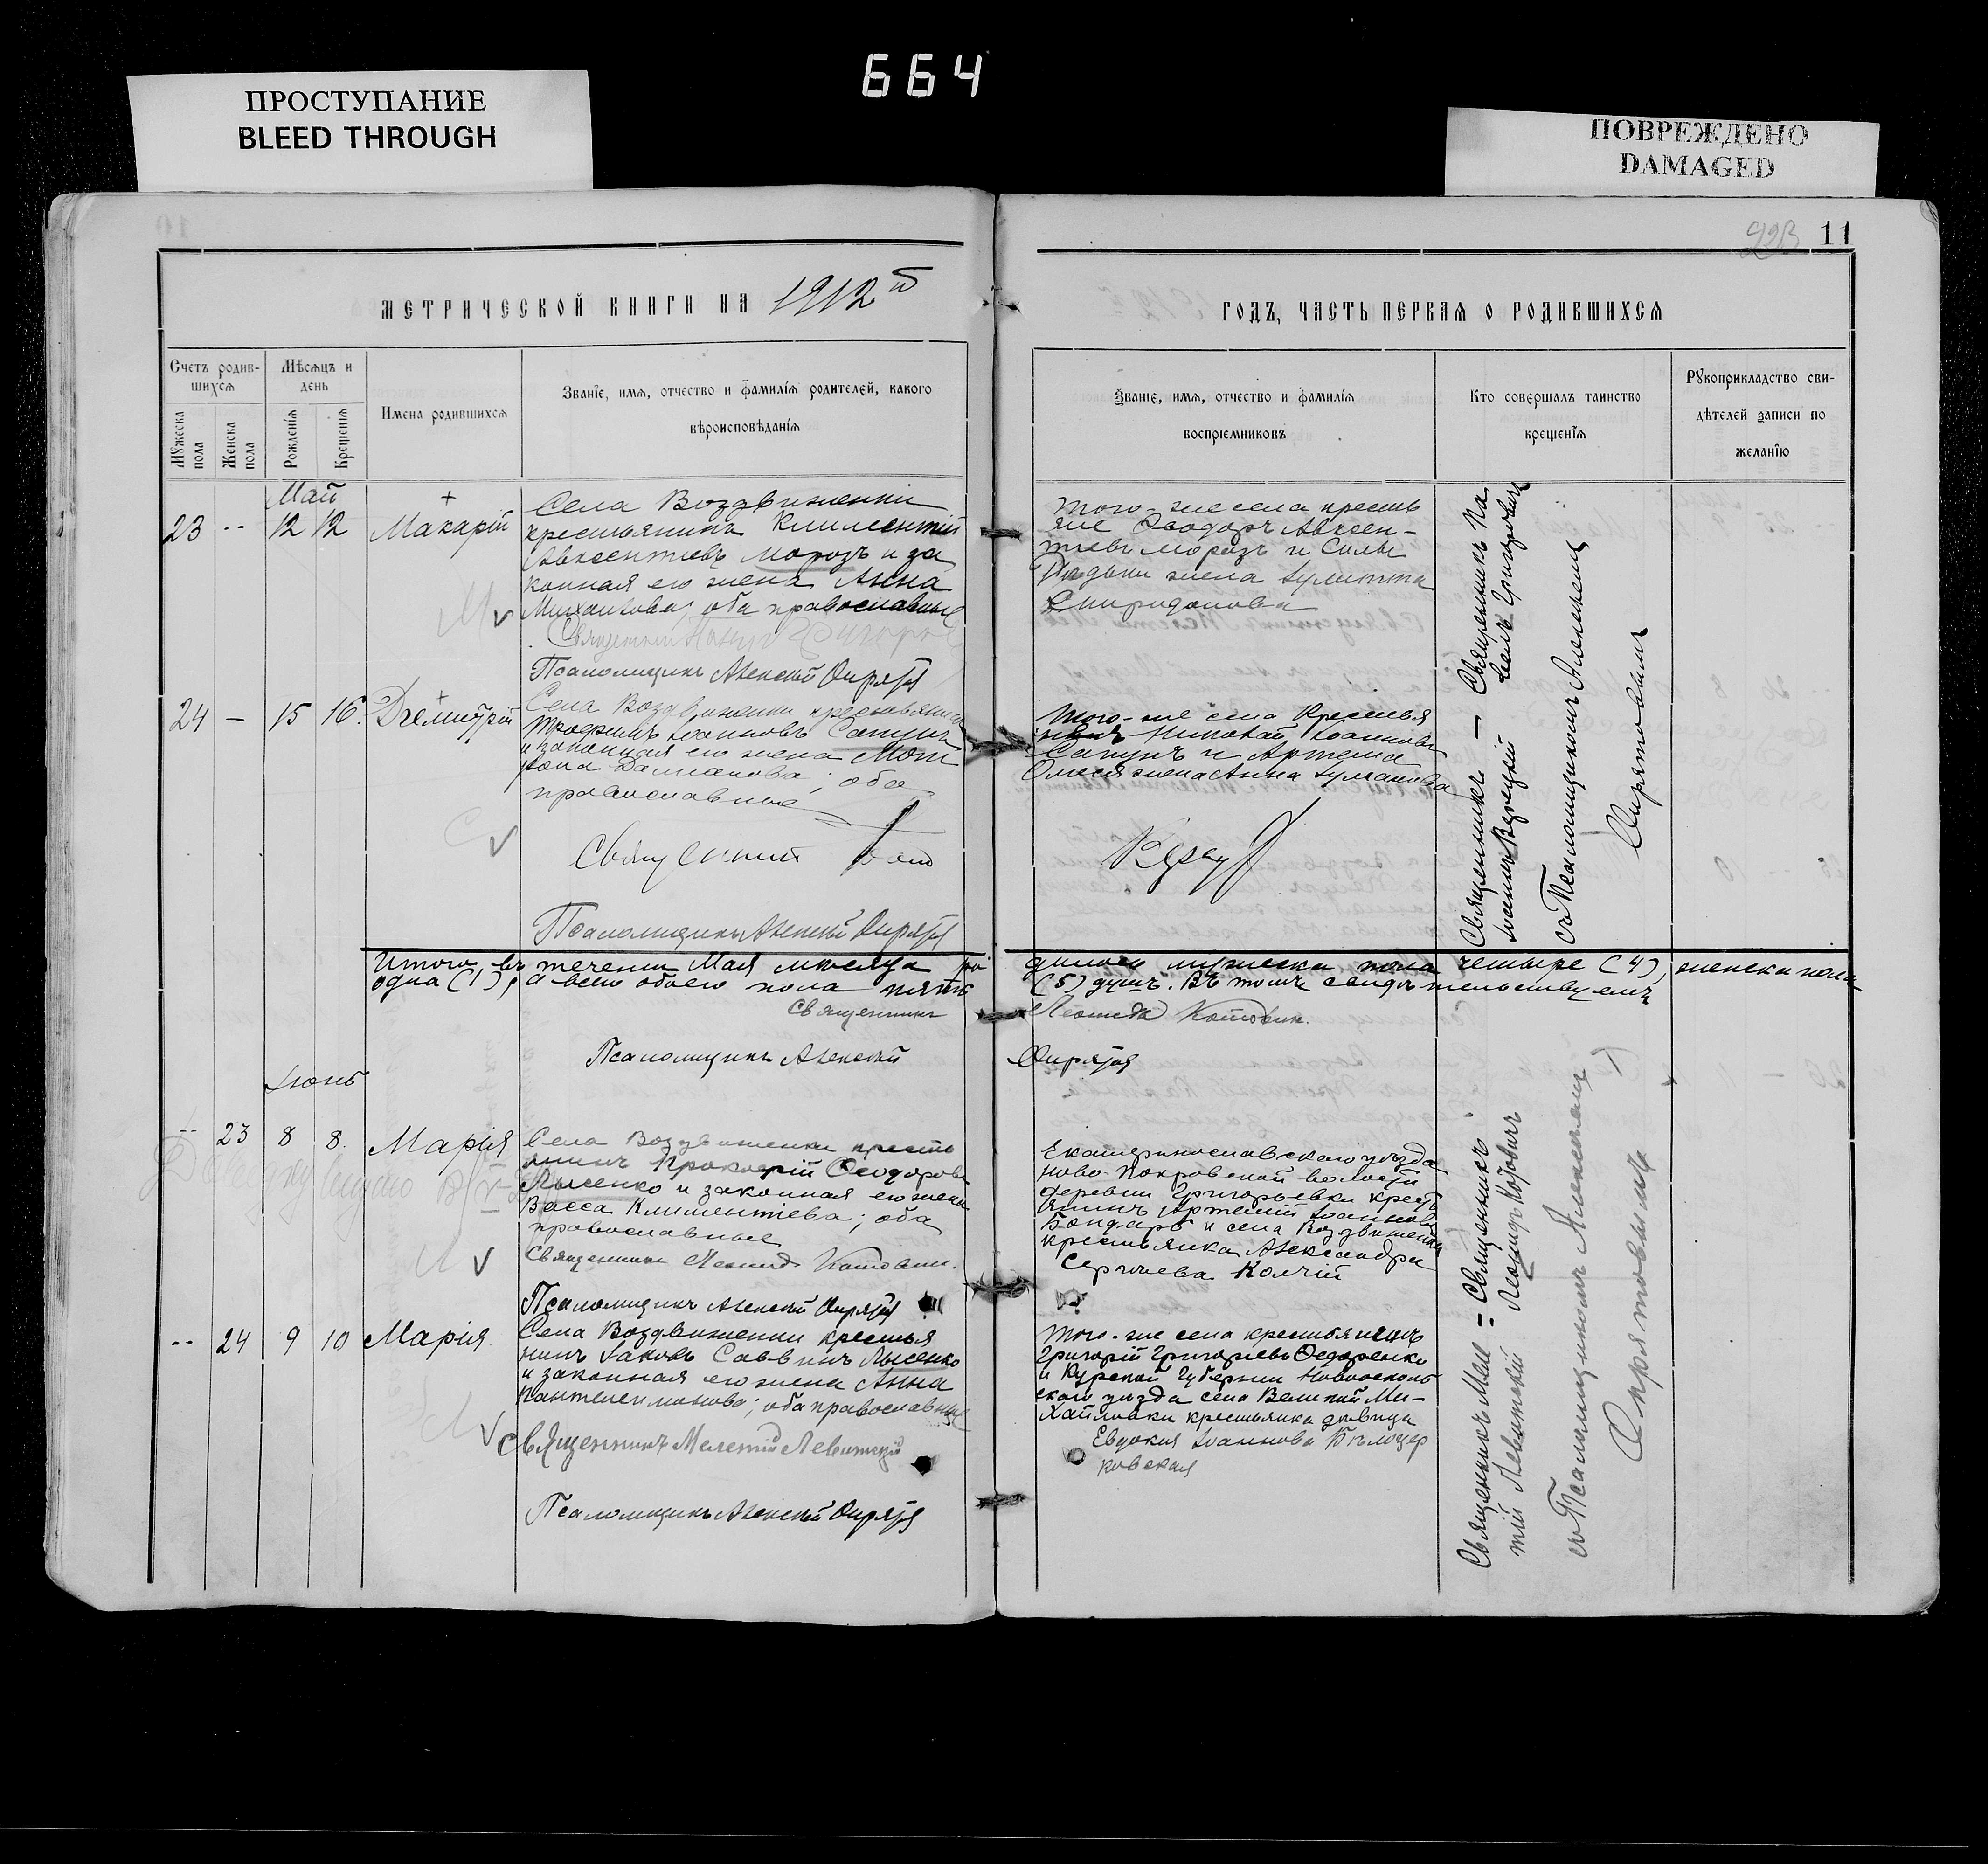 664
ПРОСТУПАНИЕ
BLEED THROUGH
ПОВРЕЖДЕНО
DAMAGED
11
МЕТРИЧЕСКОЙ КНИГИ НА 1912й
ГОДЪ, ЧАСТЬ ПЕРВАЯ О РОДИВШИХСЯ
Счетъ родив-
шихся
Мужеска пола
Женска пола
Мѣсяцъ и
день
Рожденія
Крещенія
Имена родившихся
Званіе, имя, отчество и фамилія родителей, какого
вѣроисповѣданія
Званіе, имя, отчество и фамилія
воспріемниковъ
Кто совершалъ таинство
крещенія
Рукоприкладство сви-
дѣтелей записи по
желанію
Май
23 -- 12 12 Макарій
Села Воздвиженки
крестьянинъ Климентій
Авксентіевъ Морозъ и за
конная его жена Анна
Михайлова; оба православные
Священникъ Павелъ
Псаломщикъ Алексѣй Опрятов
Того-же села крестья
не Ѳеодоръ Авксен-
тіевъ Морозъ и Силы
жена Іулитта
Спиридонова
Священникъ Па
велъ Григоровичъ
24 — 15 16. Димитрій
Села Воздвиженки крестьянинъ
Трофимъ Іоанновъ Сапунъ
и законная его жена Мот
рона; оба
православные
Священникъ
Псаломщикъ Алексѣй Опрятов
Того-же села Крестья
нинъ Николай Іоанновъ
Сапунъ и Артема
жена Анна
Священникъ
Іоаннъ
съ Псаломщикомъ Алексѣемъ
Опрятовымъ
Итого въ теченіи Мая мѣсяца ро
дилось мужеска пола четыре (4), женска пола
одна (1), а всего обоего пола пять
(5) душъ. Въ томъ свидѣтельствуемъ
Священникъ
Леонидъ Котовичъ.
Псаломщикъ Алексѣй
Опрятов
Іюнь
-- 23 8 8. Марія
Села Воздвиженки кресть
янинъ Прокофій Ѳеодоровъ
Лысенко и законная его жена
Васса Климентіева; оба
православные
Священникъ Леонидъ Котовичъ.
Псаломщикъ Алексѣй Опрятов
Екатеринославскаго уѣзда
Ново-Покровской волости
деревни Григорьевки крест
янинъ Артемій Іоанновъ
Бондарь и села Воздвиженки
крестьянка Александра
Сергиева Колчій
Священникъ
Леонидъ Котовичъ
-- 24 9 10 Марія
Села Воздвиженки крестья
нинъ Іаковъ Саввинъ Лысенко
и законная его жена Анна
Пантелеимонова; оба православные
Священникъ Мелетій Левитскій
Псаломщикъ Алексѣй Опрятов
Того-же села крестьянинъ
Григорій Григоріевъ Ѳедоренко
и Курской Губерніи Новооскольс
скаго уѣзда села Великой Ми-
хайловки крестьянка дѣвица
Евдокія Іоаннова Бѣлоцер
ковская
Священникъ Меле
тій Левитскій
съ Псаломщикомъ Алексѣемъ
Опрятовымъ